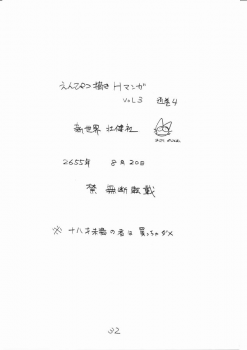 えんぴつ描きHマンガ
VOL3 通巻4
新世界 壮健社
2655年 8月20日
禁 無断転載
※ 十八才未満の者は買っちゃダメ
32